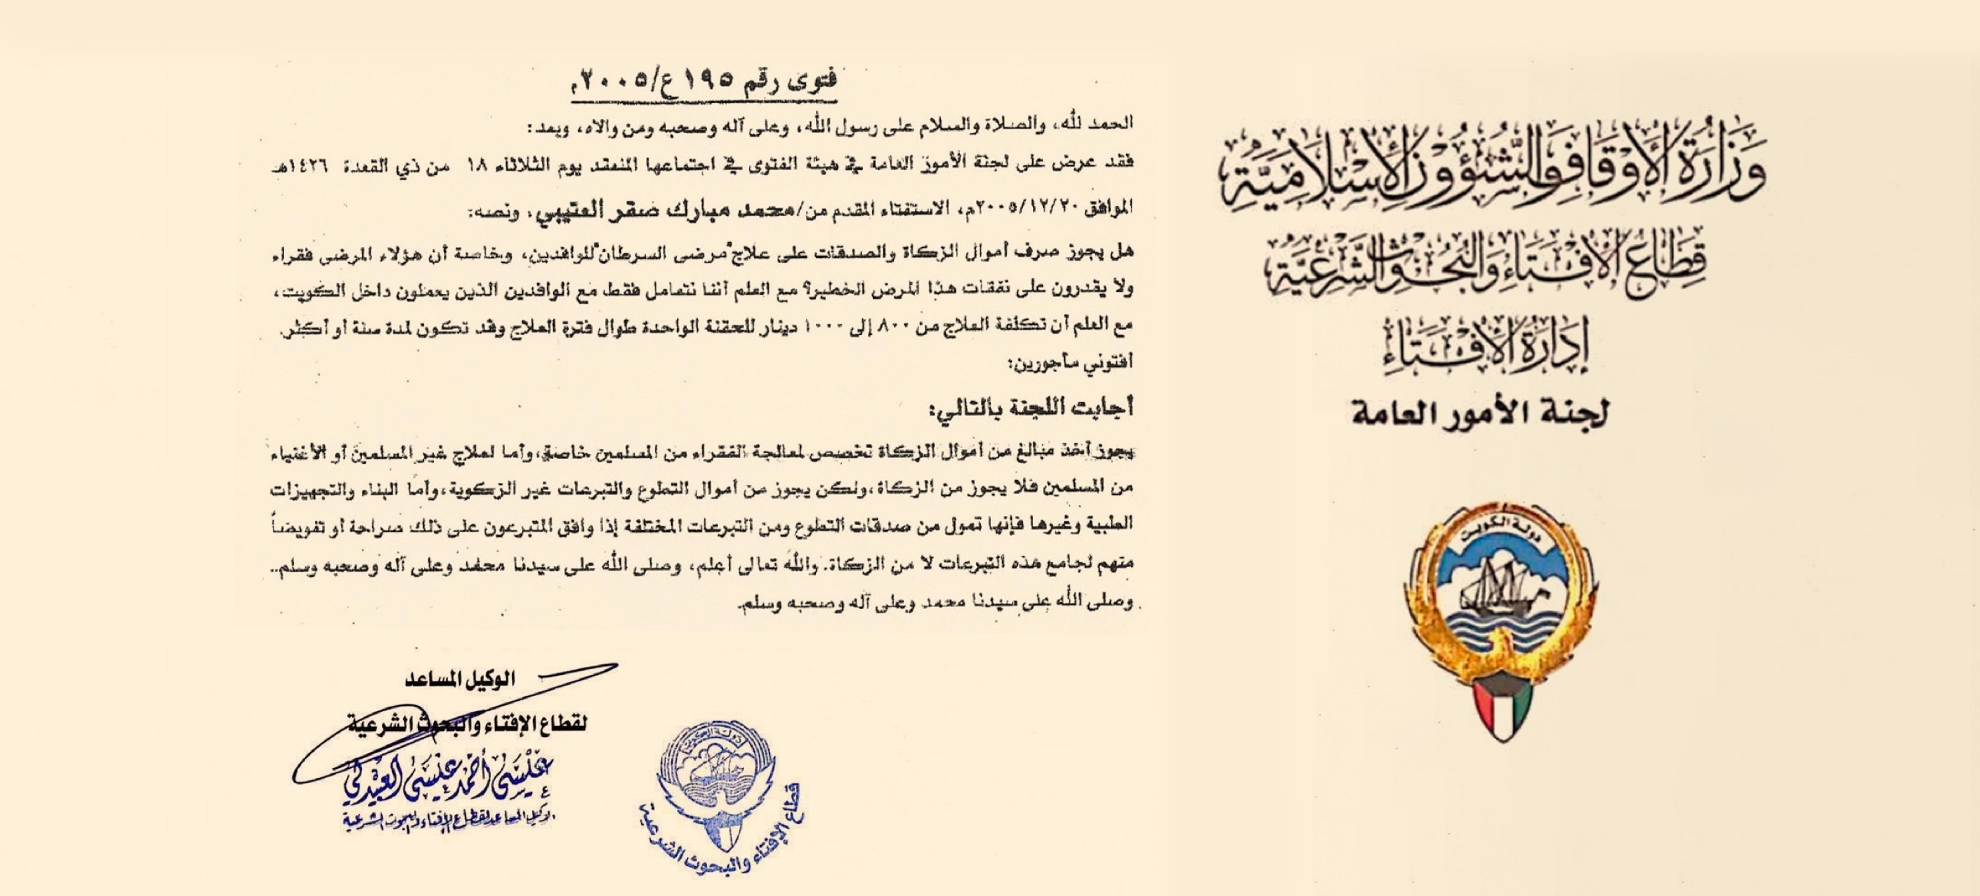 وزارة الأوقاف والشؤون الإسلامية
قطاع الإفتاء والبحوث الشرعية
إدارة الإفتاء
لجنة الأمور العامة
دولة الكويت
فتوى رقم ١٩٥ ع/٢٠٠٥م
الحمد لله، والصلاة والسلام على رسول الله، وعلى آله وصحبه ومن والاه، وبعد:
فقد عرض على لجنة الأمور العامة في هيئة الفتوى في اجتماعها المنعقد يوم الثلاثاء ١٨ من ذي القعدة ١٤٢٦هـ
الموافق ٢٠٠٥/١٢/٢٠م، الاستفتاء المقدم من/محمد مبارك صقر العتيبي، ونصه:
هل يجوز صرف أموال الزكاة والصدقات على علاج"مرضى السرطان"للوافدين، وخاصة أن هؤلاء المرضى فقراء
ولا يقدرون على نفقات هذا المرض الخطير؟ مع العلم أننا نتعامل فقط مع الوافدين الذين يعملون داخل الكويت،
مع العلم أن تكلفة العلاج من ٨٠٠ إلى ١٠٠٠ دينار للحقنة الواحدة طوال فترة العلاج وقد تكون لمدة سنة أو أكثر.
أفتوني مأجورين:
أجابت اللجنة بالتالي:
يجوز أخذ مبالغ من أموال الزكاة تخصص لمعالجة الفقراء من المسلمين خاصة،وأما لعلاج غير المسلمين أو الأغنياء
من المسلمين فلا يجوز من الزكاة،ولكن يجوز من أموال التطوع والتبرعات غير الزكوية،وأما البناء والتجهيزات
الطبية وغيرها فإنها تمول من صدقات التطوع ومن التبرعات المختلفة إذا وافق المتبرعون على ذلك صراحة أو تفويضاً
منهم لجامع هذه التبرعات لا من الزكاة. والله تعالى أعلم، وصلى الله على سيدنا محمد وعلى آله وصحبه وسلم..
وصلى الله على سيدنا محمد وعلى آله وصحبه وسلم.
الوكيل المساعد
لقطاع الإفتاء والبحوث الشرعية
عيسى أحمد عيسى العبيدلي
وكيل المساعد لقطاع الإفتاء والبحوث الشرعية
دولة الكويت
قطاع الإفتاء والبحوث الشرعية